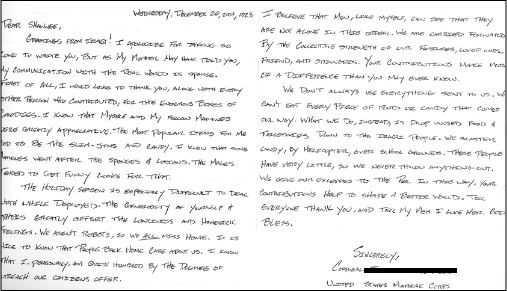 Wednesday, December 26, 2007, 1823
Dear Shawnee,
Greetings from Iraq! I apologize for taking so
long to write you, but as my mother may have told you,
my communication with the real world is sparse.
First of all, I would like to thank you, along with every
other person who contributed, for the enormous boxes of
goodies. I know that myself and my fellow Marines
were greatly appreciative. The most popular items for me
had to be the Slim-Jims and candy. I know that some
Marines went after the sponges & lotions. The males
tended to get funny looks for that.
The holiday season is especially difficult to deal
with while deployed. The generosity of yourself &
others greatly offset the loneliness and homesick
feelings. We aren't robots, so we all miss home. It is
nice to know that people back home care about us. I know
that I, personally, am quite humbled by the degrees of
outreach our citizens offer.
I believe that men, like myself, can see that they
are not alone in this ordeal. We are carried forward
by the collective strength of our families, loved ones,
friend, and strangers. Your contributions make more
of a difference than you may ever know.
We don't always use everything sent to us. We
can't eat every piece of food or candy that comes
our way. What we do, instead, is drop unused food &
toiletries down to the Iraqi people. We scatter
candy, by helicopter, over school grounds. These people
have very little, so we never throw anything out.
We give our excesses to the poor in this way. Your
contributions help to shape a better world. Tell
everyone thank you, and tell my mom I love her. God
Bless.
Sincerely,
Corporal
United States Marine Corps